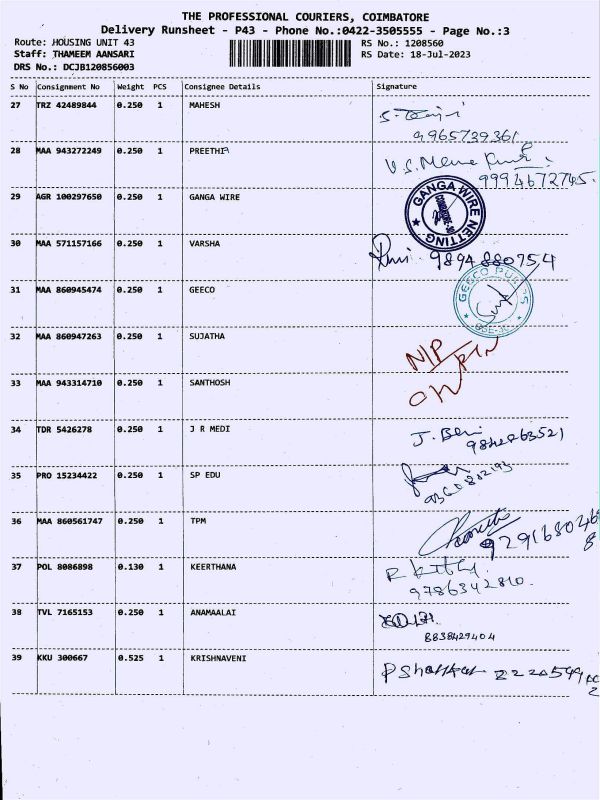 THE PROFESSIONAL COURIERS, COIMBATORE
Delivery Runsheet - P43 - Phone No.:0422-3505555 - Page No.:3
Route: HOUSING UNIT 43 RS No.: 1208560
Staff: THAMEEM AANSARI RS Date: 18-Jul-2023
DRS No.: DCJB120856003
S No Consignment No Weight PCS Consignee Details Signature
27 TRZ 42489844 0.250 1 MAHESH
9965739361
28 MAA 943272249 0.250 1 PREETHI
9994672745.
29 AGR 100297650 0.250 1 GANGA WIRE
GANGA WIRE NETTING
30 MAA 571157166 0.250 1 VARSHA
9894880754
31 MAA 860945474 0.250 1 GEECO
GEECO PUMPS
32 MAA 860947263 0.250 1 SUJATHA
N/P
33 MAA 943314710 0.250 1 SANTHOSH
34 TDR 5426278 0.250 1 J R MEDI
J. Beni
35 PRO 15234422 0.250 1 SP EDU
36 MAA 860561747 0.250 1 TPM
37 POL 8086898 0.130 1 KEERTHANA
9786342810.
38 TVL 7165153 0.250 1 ANAMAALAI
8838429404
39 KKU 300667 0.525 1 KRISHNAVENI